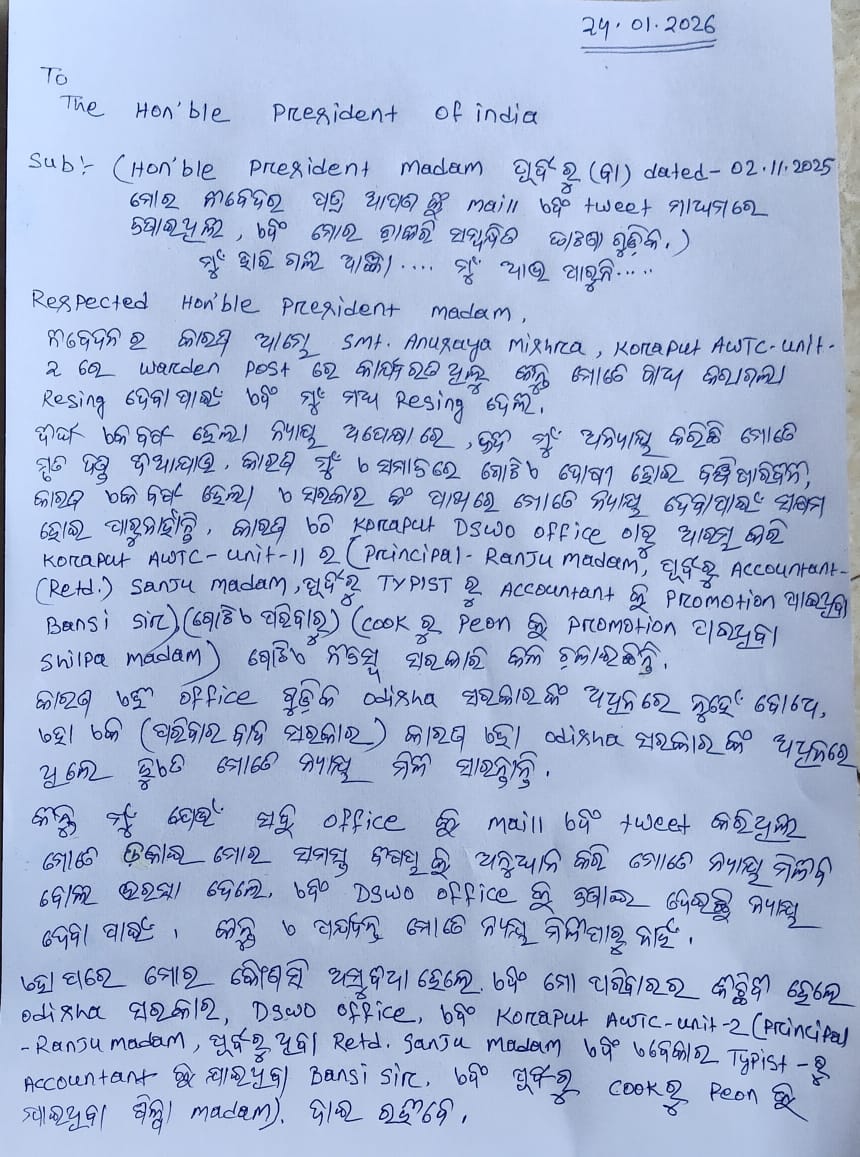 24.01.2026
To
The Hon'ble President of india
Sub:- (Hon'ble President madam ପୂର୍ବରୁ (ବା) dated- 02.11.2025
ମୋର ନିବେଦନ ପତ୍ର ଆପଣଙ୍କୁ maill ଏବଂ tweet ମାଧ୍ୟମରେ
, ଏବଂ ମୋର ଚାକରି ସମ୍ବନ୍ଧିତ ଗୁଡ଼ିକ.)
ମୁଁ ହାରି ଗଲି ଆଜ୍ଞା.... ମୁଁ ଆଉ ପାରୁନି.....
Respected Hon'ble President madam,
ନିବେଦନ ର କାରଣ ଆଜ୍ଞେ Smt. Anusaya Mishra, Koraput AWTC-unit-
2 ରେ warden Post ରେ କାର୍ଯ୍ୟରତ ଥିଲୁ କିନ୍ତୁ ମୋତେ ବାଧ୍ୟ କରାଗଲା
Resing ଦେବା ପାଇଁ ଏବଂ ମୁଁ ମଧ୍ୟ Resing ଦେଲି.
ଦୀର୍ଘ ଏକ ବର୍ଷ ହେଲା ନ୍ୟାୟ ଅପେକ୍ଷାରେ, ଯଦି ମୁଁ ଅନ୍ୟାୟ କରିଛି ମୋତେ
ମୃତ୍ୟୁ ଦଣ୍ଡ ଦିଆଯାଉ, କାରଣ ମୁଁ ଏ ସମାଜରେ ଗୋଟିଏ ଦୋଷୀ ହୋଇ ବଞ୍ଚିପାରିବିନି,
କାରଣ ଏକ ବର୍ଷ ହେଲା ଏ ସରକାର ଙ୍କ ପାଖରେ ମୋତେ ନ୍ୟାୟ ଦେବାପାଇଁ ସକ୍ଷମ
ହୋଇ ପାରୁନାହାଁନ୍ତି, କାରଣ ଏଠି Koraput DSWO office ଠାରୁ ଆରମ୍ଭ କରି
Koraput AWTC-unit-11 ର (Principal- Ranju madam, ପୂର୍ବରୁ Accountant-
(Retd.) Sanju madam, ପୂର୍ବରୁ TYPIST ରୁ Accountant କୁ Promotion ପାଇଥିବା
Bansi Sir) (ଗୋଟିଏ ପରିବାରୁ) (Cook ରୁ Peon କୁ promotion ପାଇଥିବା
Shilpa madam) ଗୋଟିଏ ନିଜସ୍ୱ ସରକାରି କଳି ଚଳାଇଛନ୍ତି.
କାରଣ ଏହି office ଗୁଡ଼ିକ odisha ସରକାରଙ୍କ ଅଧିନରେ ନୁହେଁ ବୋଧେ,
ଏହା ଏକ (ପରିବାର ବାଦି ସରକାର) କାରଣ ଏହା odisha ସରକାରଙ୍କ ଅଧିନରେ
ଥିଲେ ହୁଏତ ମୋତେ ନ୍ୟାୟ ମିଳି ସାରନ୍ତାଣି.
କିନ୍ତୁ ମୁଁ ଯେଉଁ ସବୁ office କୁ maill ଏବଂ tweet କରିଥିଲି
ମୋତେ ଡ଼କାଇ ମୋର ସମସ୍ତ ବିଷୟ କୁ ଅନୁଧ୍ୟାନ କରି ମୋତେ ନ୍ୟାୟ ମିଳିବ
ବୋଲି ଭରସା ଦେଲେ, ଏବଂ DSWO office କୁ ପଠାଇ ଦେଇଛୁ ନ୍ୟାୟ
ଦେବା ପାଇଁ, କିନ୍ତୁ ଏ ପର୍ଯ୍ୟନ୍ତ ମୋତେ ନ୍ୟାୟ ମିଳିପାରୁ ନାହିଁ.
ଏହା ପରେ ମୋର କୌଣସି ଅସୁବିଧା ହେଲେ, ଏବଂ ମୋ ପରିବାରର କିଛିବି ହେଲେ
odisha ସରକାର, DSWO office, ଏବଂ Koraput AWTC-unit-2 (principal
-Ranju madam, ପୂର୍ବରୁ ଥିବା Retd. Sanju madam ଏବଂ ଏବେକାର Typist-ରୁ
Accountant କୁ ଯାଇଥିବା Bansi Sir, ଏବଂ ପୂର୍ବରୁ Cook ରୁ Peon କୁ
ଯାଇଥିବା ଶିଳ୍ପା madam). ଦାଇ ରହିବେ.